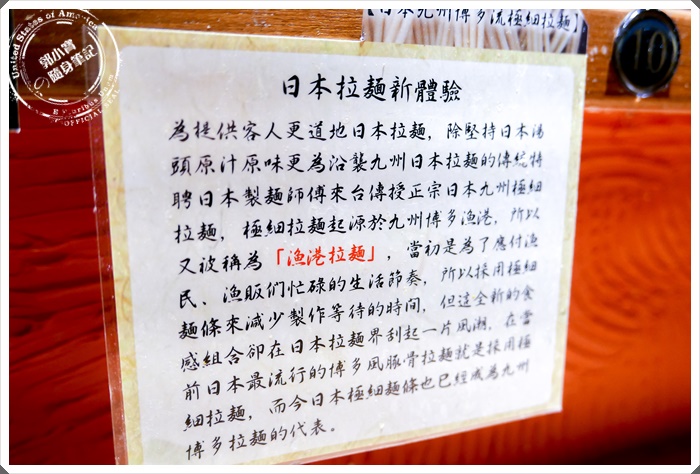 【日本九州博多流極細拉麵】
10
United States of America
郭小寶
の隨身筆記
OFFICIAL
日本拉麵新體驗
為提供客人更道地日本拉麵，除堅持日本湯
頭原汁原味更為沿襲九州日本拉麵的傳統特
聘日本製麵師傅來台傳授正宗日本九州極細
拉麵，極細拉麵起源於九州博多漁港，所以
又被稱為「漁港拉麵」，當初是為了應付漁
民、漁販們忙碌的生活節奏，所以採用極細
麵條來減少製作等待的時間，但這全新的食
感組合卻在日本拉麵界刮起一片風潮，在當
前日本最流行的博多風豚骨拉麵就是採用極
細拉麵，而今日本極細麵條也已經成為九州
博多拉麵的代表。